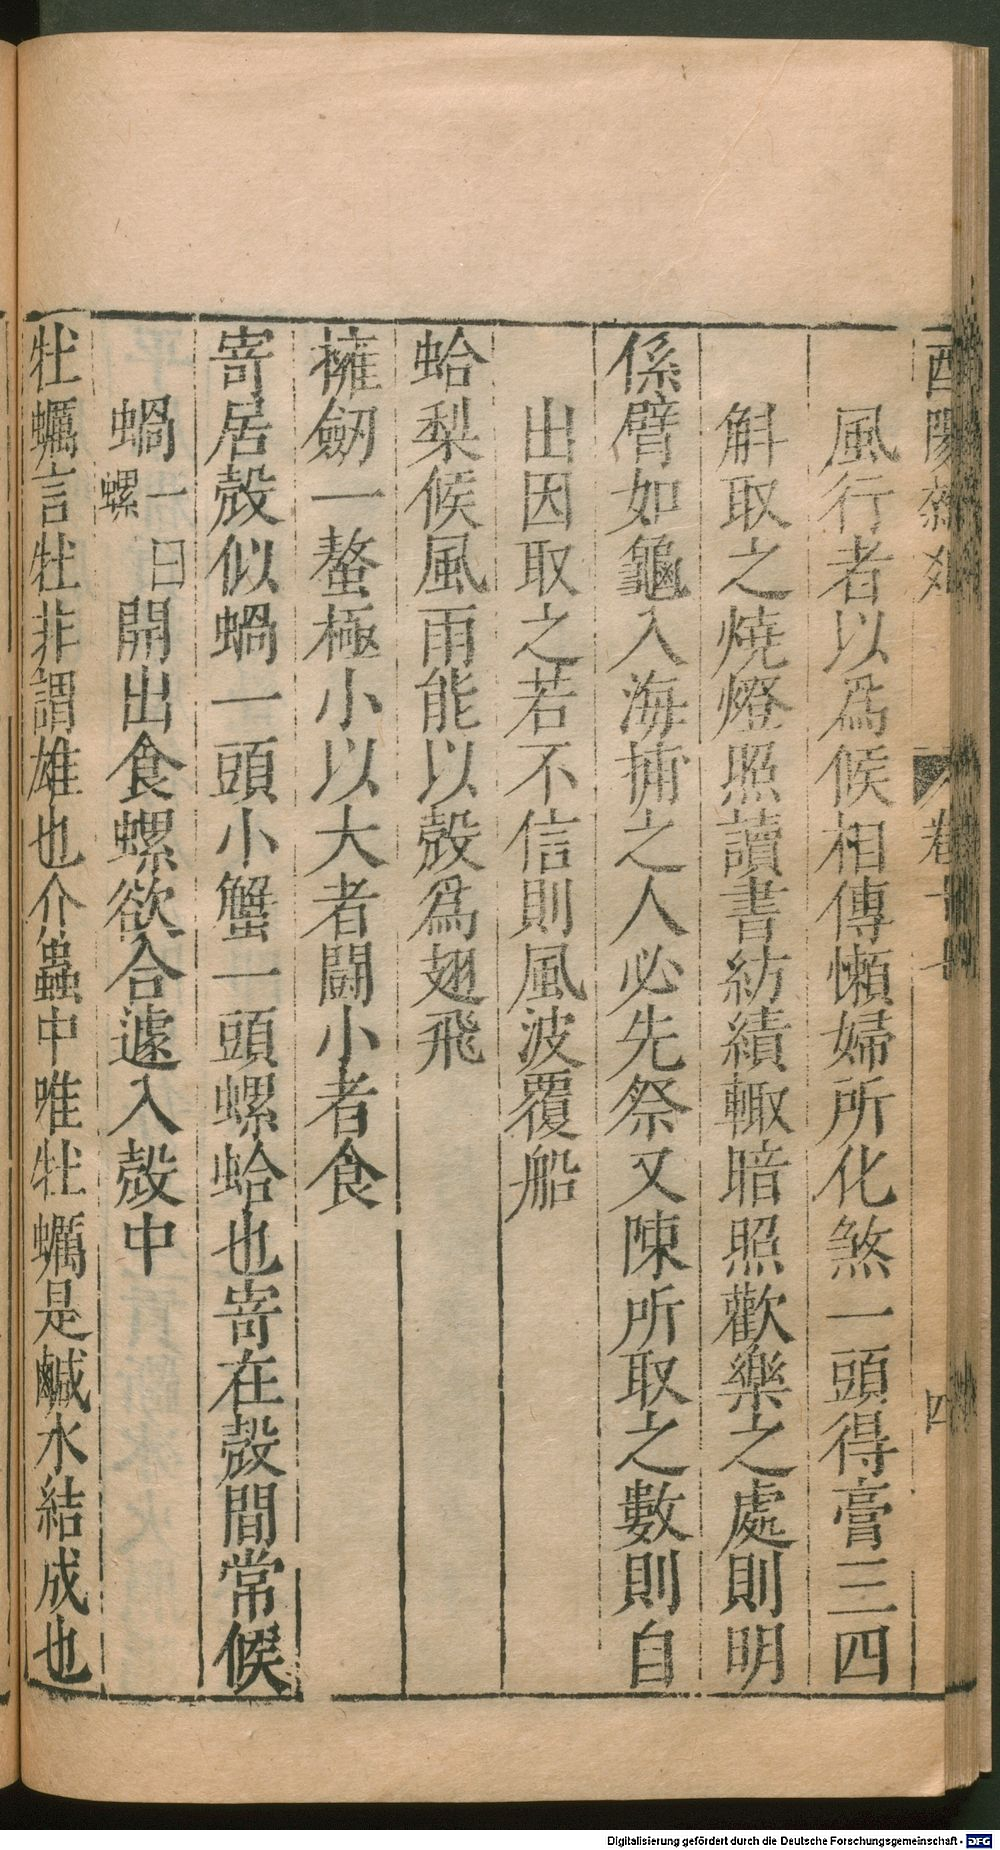 酉陽雜俎 卷十七 四
風行者以爲候相傳懶婦所化煞一頭得膏三四
斛取之燒燈照讀書紡績輙暗照歡樂之處則明
係臂如龜入海捕之人必先祭又陳所取之數則自
出因取之若不信則風波覆船
蛤梨候風雨能以殼爲翅飛
擁劒一螯極小以大者闘小者食
寄居殼似蝸一頭小蟹一頭螺蛤也寄在殼間常候
蝸一曰螺開出食螺欲合遽入殼中
牡蠣言牡非謂雄也介蟲中唯牡蠣是鹹水結成也
Digitalisierung gefördert durch die Deutsche Forschungsgemeinschaft - DFG